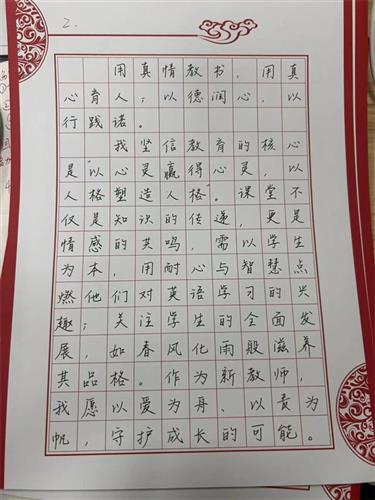 2.
用真情教书，用真
心育人；以德润心，以
行践诺。
我坚信教育的核心
是“以心灵赢得心灵，以
人格塑造人格”。课堂不
仅是知识的传递，更是
情感的共鸣，需以学生
为本，用耐心与智慧点
燃他们对英语学习的兴
趣；关注学生的全面发
展，如春风化雨般滋养
其品格。作为新教师，
我愿以爱为舟、以责为
帆，守护成长的可能。